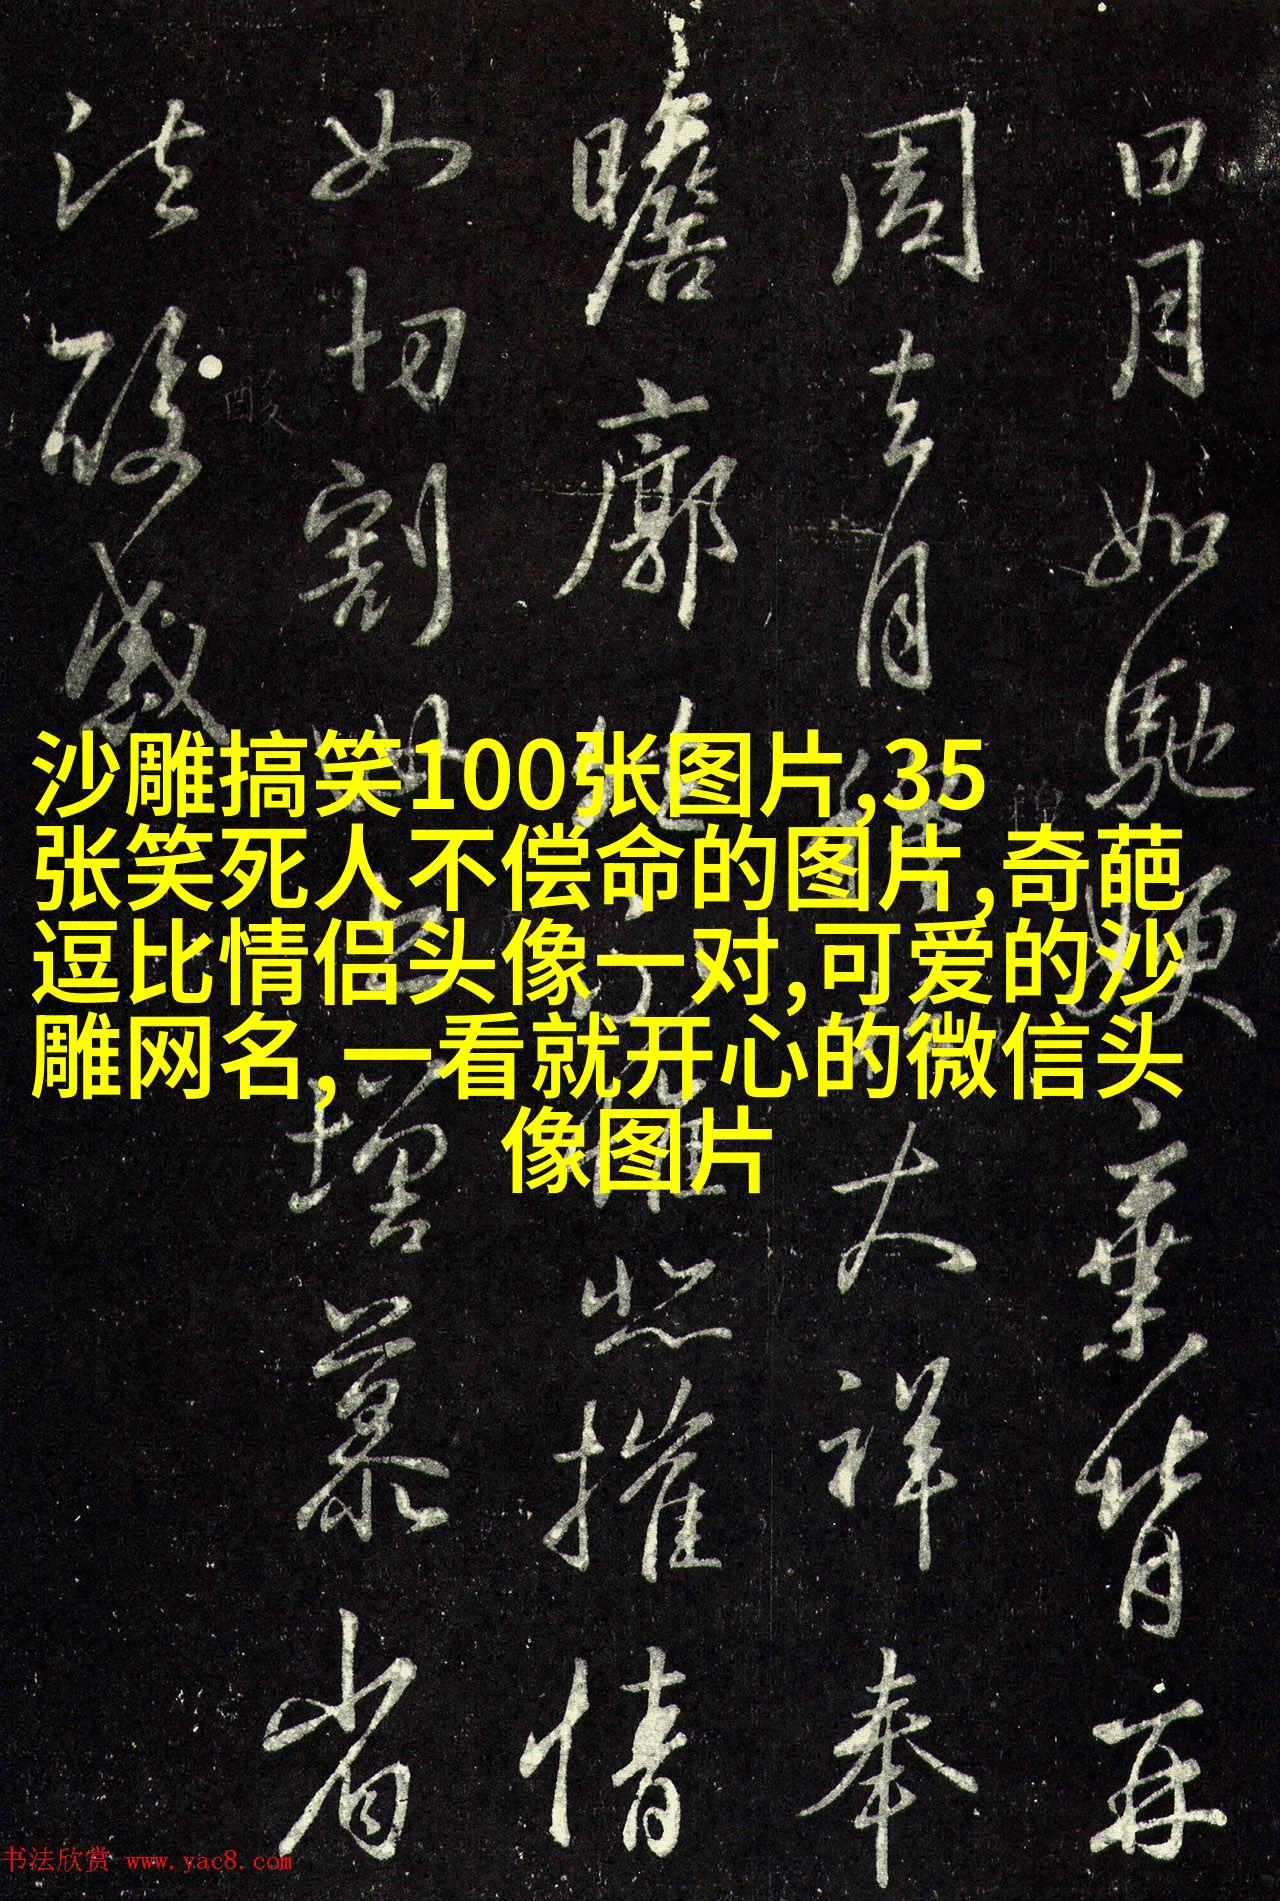 日月如馳嫂棄背再
周去月大祥奉
瞻廓悲摧情
如切割增慕省
酸感
沙雕搞笑100张图片,35
张笑死人不偿命的图片,奇葩
逗比情侣头像一对,可爱的沙
雕网名,一看就开心的微信头
像图片
书法欣赏 www.yac8.com